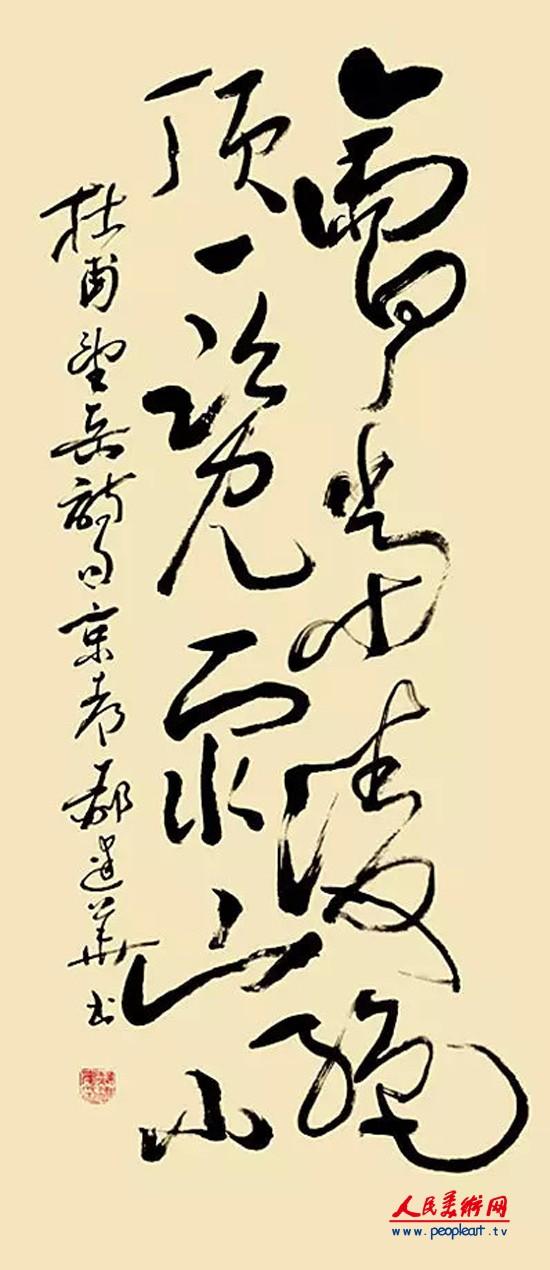 會當凌絕
頂一覽眾山小
杜甫望岳詩句京華書
人民美術网
www.peopleart.tv